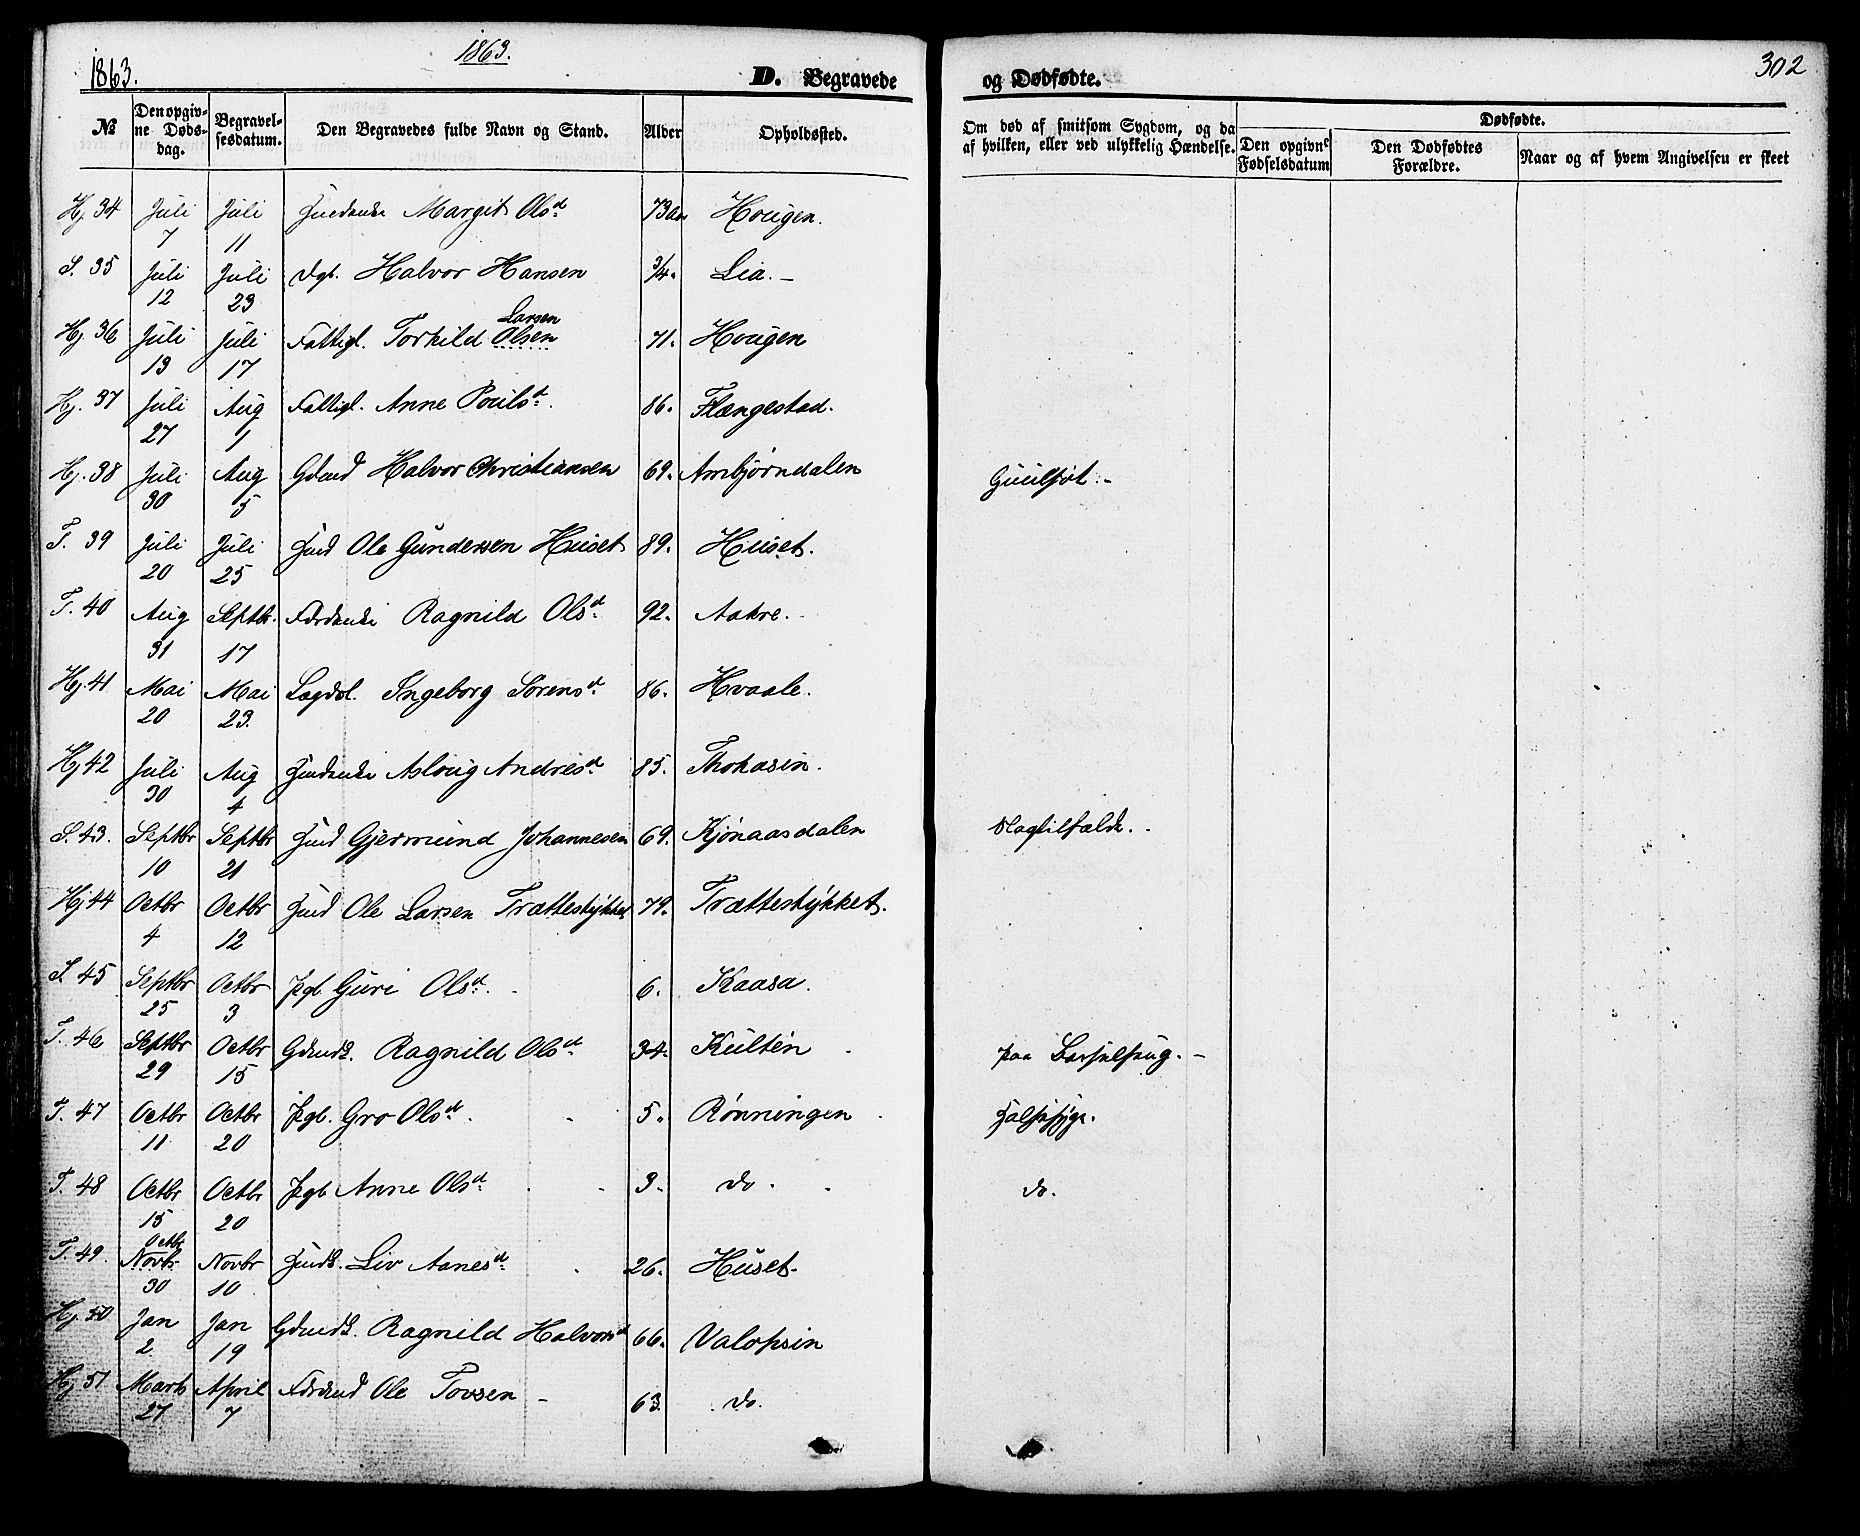 1863.
1863.
D. Begravede
og Dødfødte.
302
№ Den opgivne Dødsdag. Begravelsesdatum. Den Begravedes fulde Navn og Stand. Alder Opholdssted. Om død af smitsom Sygdom, og da af hvilken, eller ved ulykkelig Hændelse. Dødfødte. Den opgivne Fødselsdatum Den Dødfødtes Forældre. Naar og af hvem Angivelsen er skeet
Hj 34 Juli 7 Juli 11 Margit Olsd. 73 Hougen.
S. 35 Juli 12 Juli 23 Halvor Hansen 3/4. Lia. –
Hj. 36 Juli 13 Juli 17 Fattigl. Torkild Olsen Larsen 71. Hougen
Hj. 37 Juli 27 Aug 1 Fattigl. Anne Poulsd. 86. Flængestad.
Hj. 38 Juli 30 Aug 5 Gdmd Halvor Christiansen 69. Ambjørndalen Guulsot. –
T. 39 Juli 20 Juli 25 Hmd Ole Gundersen Huset 89. Huset.
T. 40 Aug 31 Septbr. 17 Ragnild Olsd. 92. Aakre.
Hj. 41 Mai 20 Mai 23. Lægdsl. Ingeborg Sørensd. 86. Hvaale.
Hj 42 Juli 30 Aug 4 Aslaug Andresd. 85. Thokasin.
S. 43. Septbr 10 Septbr 21 Hmd Gjermund Johannesen 69. Kjønaasdalen Slagtilfælde.
Hj 44 Octbr 4 Octbr 12 Hmd Ole Larsen Trættestykket 79. Trættestykket.
S. 45 Septbr 25 Octbr 3 Pgb Guri Olsd. 6. Kaasa.
T. 46 Septbr 29 Octbr 15 Gdmds. Ragnild Olsd. 34. Kulten paa Barselseng. –
T. 47 Octbr 11 Octbr 20 Pgb. Gro Olsd. 5. Rønningen Halssyge.
T. 48 Octbr 15 Octbr 20 Pgb Anne Olsd. 3. do. do.
T. 49. Novbr Octbr 30 Novbr 10 Hmds. Liv Aanesd. 26. Huset.
Hj. 50 Jan 2. Jan 19 Gdmds. Ragnild Halvorsd 66. Valopsin
Hj 51 Marts 27 April 7 Ole Tovsen – 63. do.